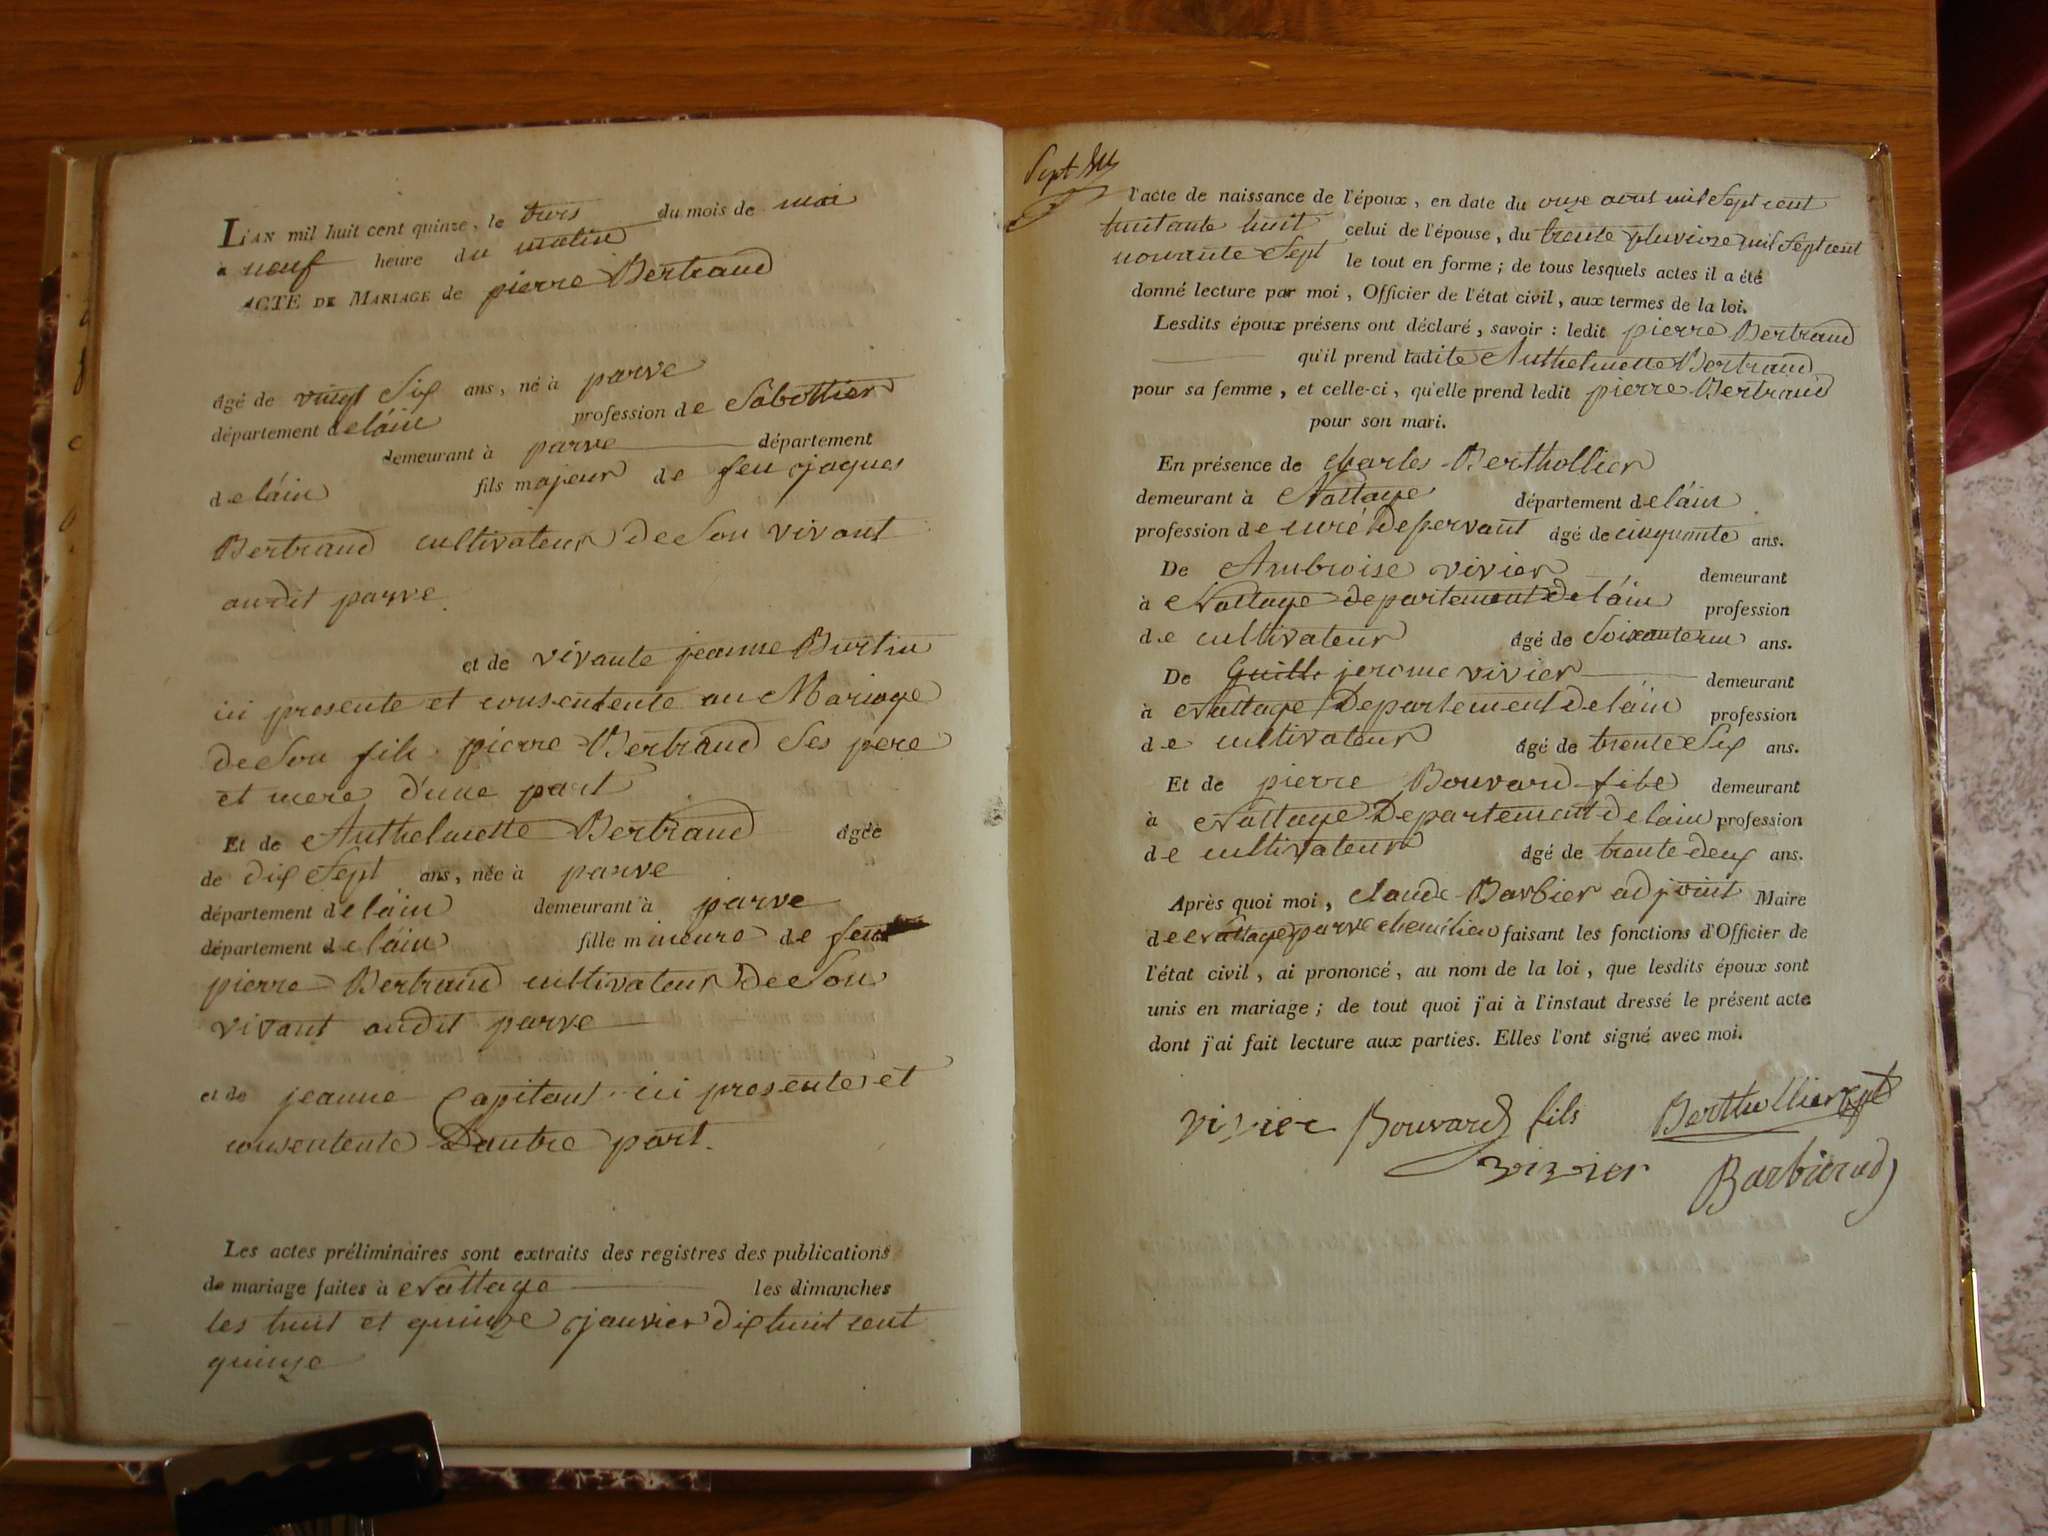 L'AN mil huit cent quinze, le trois du mois de mai
à neuf heure du matin
ACTE DE MARIAGE de pierre Bertrand
âgé de vingt six ans, né à parve
département deláin profession de Sabottier
demeurant à parve département
deláin fils majeur de feu jaques
Bertrand cultivateur de Son vivant
audit parve
et de vivante jeanne Burlin
ici presente et consentente au Mariage
de Son fils pierre Bertrand Ses pere
et mere d'une part
Et de Anthelmette Bertrand âgée
de dix Sept ans, née à parve
département deláin demeurant à parve
département deláin fille mineure de feu
pierre Bertrand cultivateur de Son
vivant audit parve
et de jeanne Capitant ici presente et
consentente D'autre part.
Les actes préliminaires sont extraits des registres des publications
de mariage faites à Nattage les dimanches
les huit et quinze janvier dix huit cent
quinze
l'acte de naissance de l'époux, en date du onze aout mil Sept cent
huitante huit celui de l'épouse, du trente pluviose mil Sept cent
nonante Sept le tout en forme; de tous lesquels actes il a été
donné lecture par moi, Officier de l'état civil, aux termes de la loi.
Lesdits époux présens ont déclaré, savoir: ledit pierre Bertrand
qu'il prend ladite Anthelmette Bertrand
pour sa femme, et celle-ci, qu'elle prend ledit pierre Bertrand
pour son mari.
En présence de charles Berthollier
demeurant à Nattage département deláin
profession de curé Desservant âgé de cinquante ans.
De Ambroise vivier demeurant
à Nattage departement de láin profession
de cultivateur âgé de Soixante un ans.
De Guill. jerome vivier demeurant
à Nattage Departement De láin profession
de cultivateur âgé de trente Six ans.
Et de pierre Bouvard fils demeurant
à Nattage Departement De lain profession
de cultivateur âgé de trente deux ans.
Après quoi moi, claude Barbier adjoint Maire
de Nattage parve chemilieu faisant les fonctions d'Officier de
l'état civil, ai prononcé, au nom de la loi, que lesdits époux sont
unis en mariage; de tout quoi j'ai à l'instaut dressé le présent acte
dont j'ai fait lecture aux parties. Elles l'ont signé avec moi.
vivier Bouvard fils Berthollier
vivier Barbier adj